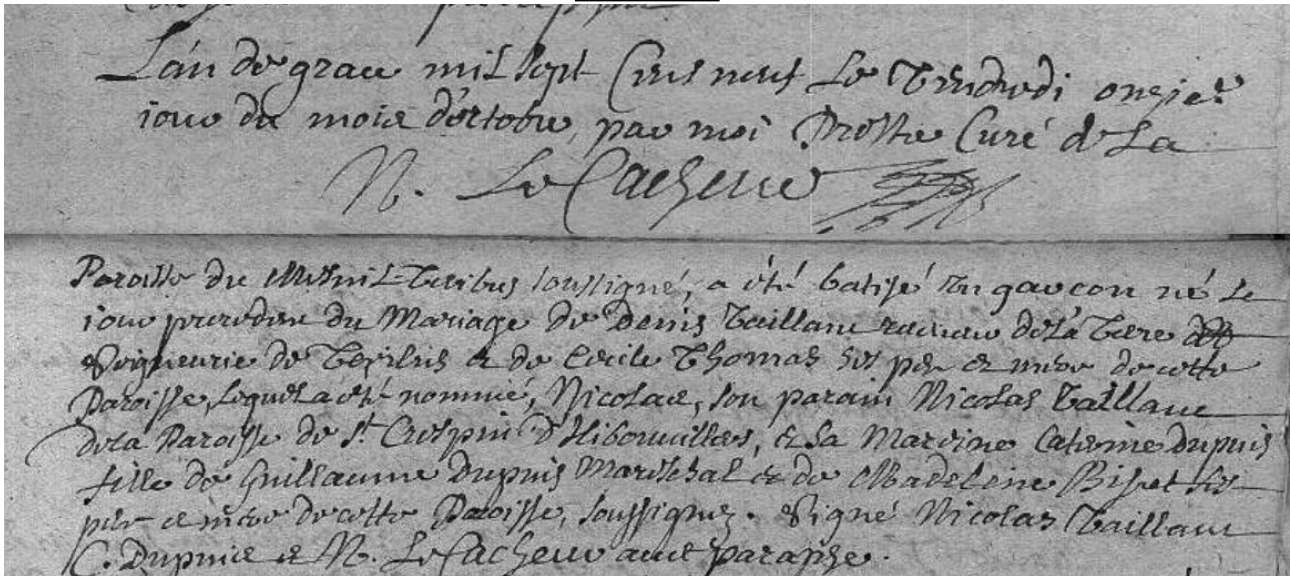 L'an de grace mil sept Cens neuf Le Vendredi onzie.
jour du mois d'octobre, par moi Prestre Curé de La
N. Le Cacheux
Paroisse du Mesnil-Theribus soussigné, a été batisé Un garcon né Le
jour precedent du Mariage de Denis Vaillant receveur de La Terre
Seigneurie de Teribus et de Cecile Thomas ses per et mere de cette
Paroisse, Lequel a été nommé, Nicolas, son parain Nicolas Vaillant
de la Paroisse de St Crespin d'Hibouvillers, et Sa Mareine Caterine Dupuis
fille de Guillaume Dupuis Mareschal et de Madeleine Bisret ses
per et mere de cette Paroisse, soussignez. Signé Nicolas Vaillant
C. Dupuis et N. Le Cacheux avec paraphe.